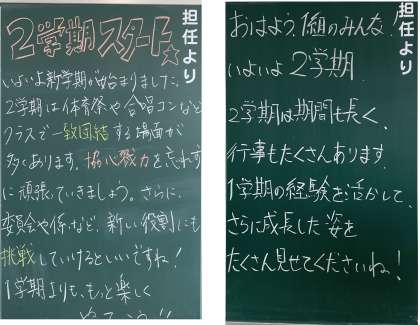 担任より
2学期スタート☆
いよいよ新学期が始まりました。
2学期は体育祭や合唱コンなど
クラスで一致団結する場面が
多くあります。協心戮力を忘れず
に頑張っていきましょう。さらに、
委員会や係など、新しい役割にも
挑戦していけるといいですね!
1学期よりも、もっと楽しく
担任より
おはよう、1組のみんな。
いよいよ2学期
2学期は期間も長く、
行事もたくさんあります。
1学期の経験を活かして、
さらに成長した姿を
たくさん見せてくださいね!